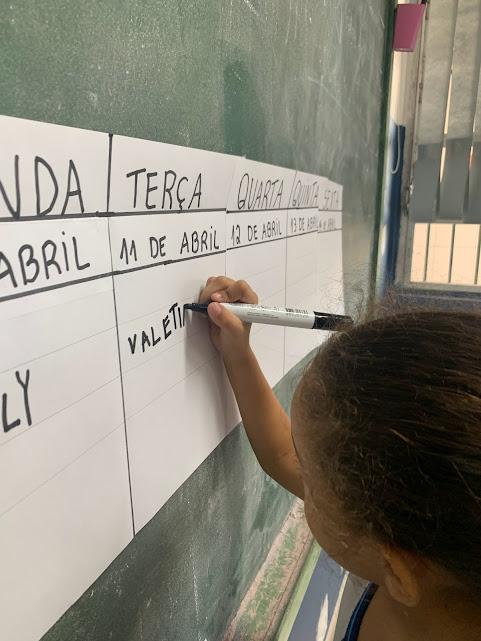 NDA TERÇA QUARTA QUINTA SEXTA
ABRIL 11 DE ABRIL 12 DE ABRIL 13 DE ABRIL ABRIL
VALETI
LY